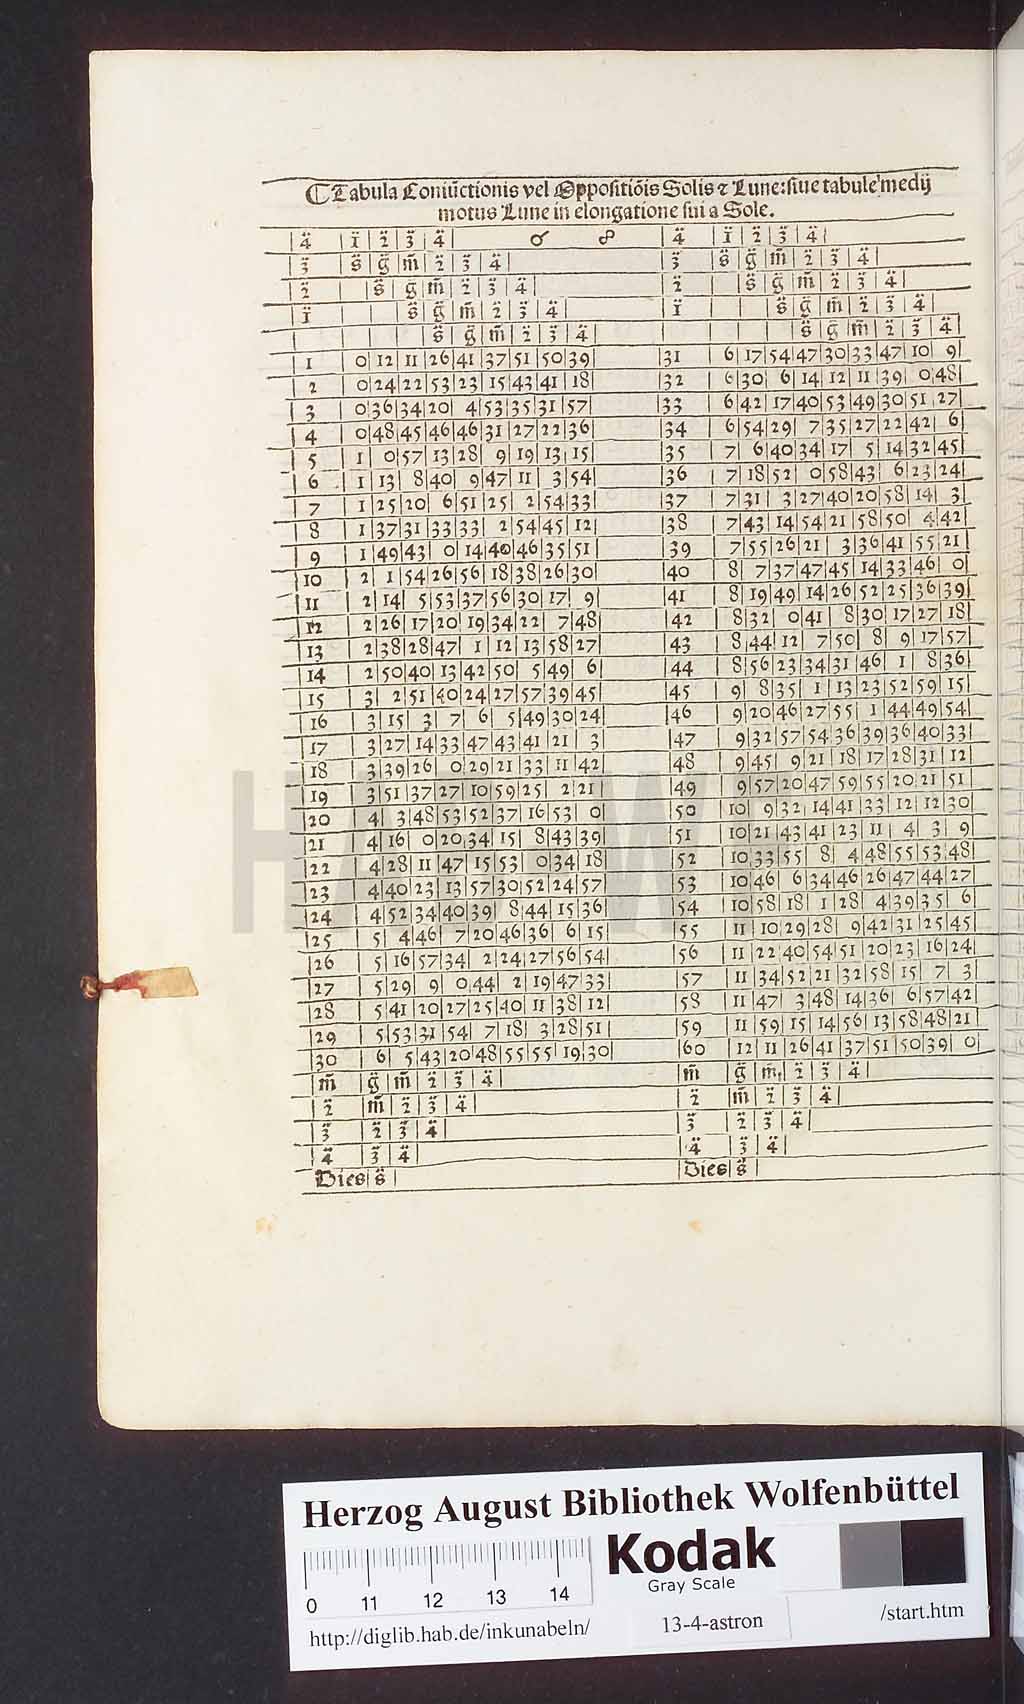 ☾ Tabula Coniūctionis vel Oppositiōis Solis ⁊ Lune:siue tabule medij
motus Lune in elongatione sui a Sole.
4̈ | 1̈ | 2̈ | 3̈ | 4̈ | ☌ ☍ | 4̈ | 1̈ | 2̈ | 3̈ | 4̈
3̈ | s̈ | g̈ | m̄ | 2̈ | 3̈ | 4̈ | 3̈ | s̈ | g̈ | m̄ | 2̈ | 3̈ | 4̈
2̈ | s̈ | g̈ | m̄ | 2̈ | 3̈ | 4̈ | 2̈ | s̈ | g̈ | m̄ | 2̈ | 3̈ | 4̈
1̈ | s̈ | g̈ | m̄ | 2̈ | 3̈ | 4̈ | 1̈ | s̈ | g̈ | m̄ | 2̈ | 3̈ | 4̈
s̈ | g̈ | m̄ | 2̈ | 3̈ | 4̈ | s̈ | g̈ | m̄ | 2̈ | 3̈ | 4̈
1 | 0|12|11|26|41|37|51|50|39 | 31 | 6|17|54|47|30|33|47|10|9
2 | 0|24|22|53|23|15|43|41|18 | 32 | 6|30|6|14|12|11|39|0|48
3 | 0|36|34|20|4|53|35|31|57 | 33 | 6|42|17|40|53|49|30|51|27
4 | 0|48|45|46|46|31|27|22|36 | 34 | 6|54|29|7|35|27|22|42|6
5 | 1|0|57|13|28|9|19|13|15 | 35 | 7|6|40|34|17|5|14|32|45
6 | 1|13|8|40|9|47|11|3|54 | 36 | 7|18|52|0|58|43|6|23|24
7 | 1|25|20|6|51|25|2|54|33 | 37 | 7|31|3|27|40|20|58|14|3
8 | 1|37|31|33|33|2|54|45|12 | 38 | 7|43|14|54|21|58|50|4|42
9 | 1|49|43|0|14|40|46|35|51 | 39 | 7|55|26|21|3|36|41|55|21
10 | 2|1|54|26|56|18|38|26|30 | 40 | 8|7|37|47|45|14|33|46|0
11 | 2|14|5|53|37|56|30|17|9 | 41 | 8|19|49|14|26|52|25|36|39
12 | 2|26|17|20|19|34|22|7|48 | 42 | 8|32|0|41|8|30|17|27|18
13 | 2|38|28|47|1|12|13|58|27 | 43 | 8|44|12|7|50|8|9|17|57
14 | 2|50|40|13|42|50|5|49|6 | 44 | 8|56|23|34|31|46|1|8|36
15 | 3|2|51|40|24|27|57|39|45 | 45 | 9|8|35|1|13|23|52|59|15
16 | 3|15|3|7|6|5|49|30|24 | 46 | 9|20|46|27|55|1|44|49|54
17 | 3|27|14|33|47|43|41|21|3 | 47 | 9|32|57|54|36|39|36|40|33
18 | 3|39|26|0|29|21|33|11|42 | 48 | 9|45|9|21|18|17|28|31|12
19 | 3|51|37|27|10|59|25|2|21 | 49 | 9|57|20|47|59|55|20|21|51
20 | 4|3|48|53|52|37|16|53|0 | 50 | 10|9|32|14|41|33|12|12|30
21 | 4|16|0|20|34|15|8|43|39 | 51 | 10|21|43|41|23|11|4|3|9
22 | 4|28|11|47|15|53|0|34|18 | 52 | 10|33|55|8|4|48|55|53|48
23 | 4|40|23|13|57|30|52|24|57 | 53 | 10|46|6|34|46|26|47|44|27
24 | 4|52|34|40|39|8|44|15|36 | 54 | 10|58|18|1|28|4|39|35|6
25 | 5|4|46|7|20|46|36|6|15 | 55 | 11|10|29|28|9|42|31|25|45
26 | 5|16|57|34|2|24|27|56|54 | 56 | 11|22|40|54|51|20|23|16|24
27 | 5|29|9|0|44|2|19|47|33 | 57 | 11|34|52|21|32|58|15|7|3
28 | 5|41|20|27|25|40|11|38|12 | 58 | 11|47|3|48|14|36|6|57|42
29 | 5|53|31|54|7|18|3|28|51 | 59 | 11|59|15|14|56|13|58|48|21
30 | 6|5|43|20|48|55|55|19|30 | 60 | 12|11|26|41|37|51|50|39|0
m̄ | g̈ | m̄ | 2̈ | 3̈ | 4̈ | m̄ | g̈ | m̄ | 2̈ | 3̈ | 4̈
2̈ | m̄ | 2̈ | 3̈ | 4̈ | 2̈ | m̄ | 2̈ | 3̈ | 4̈
3̈ | 2̈ | 3̈ | 4̈ | 3̈ | 2̈ | 3̈ | 4̈
4̈ | 3̈ | 4̈ | 4̈ | 3̈ | 4̈
Dies | s̈ | Dies | s̈
Herzog August Bibliothek Wolfenbüttel
0 11 12 13 14
Kodak
Gray Scale
http://diglib.hab.de/inkunabeln/
13-4-astron
/start.htm